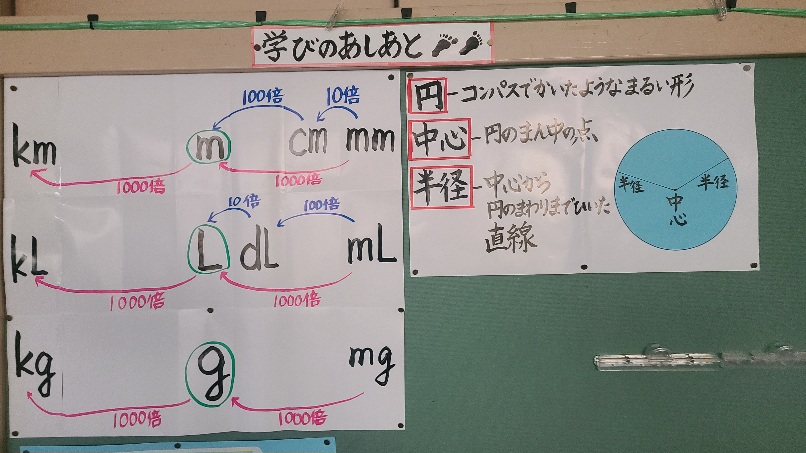 学びのあしあと
100倍 10倍
km m cm mm
1000倍 1000倍
10倍 100倍
kL L dL mL
1000倍 1000倍
kg g mg
1000倍 1000倍
円-コンパスでかいたようなまるい形
中心-円のまん中の点、
半径-中心から
円のまわりまでひいた
直線
半径 半径
中心